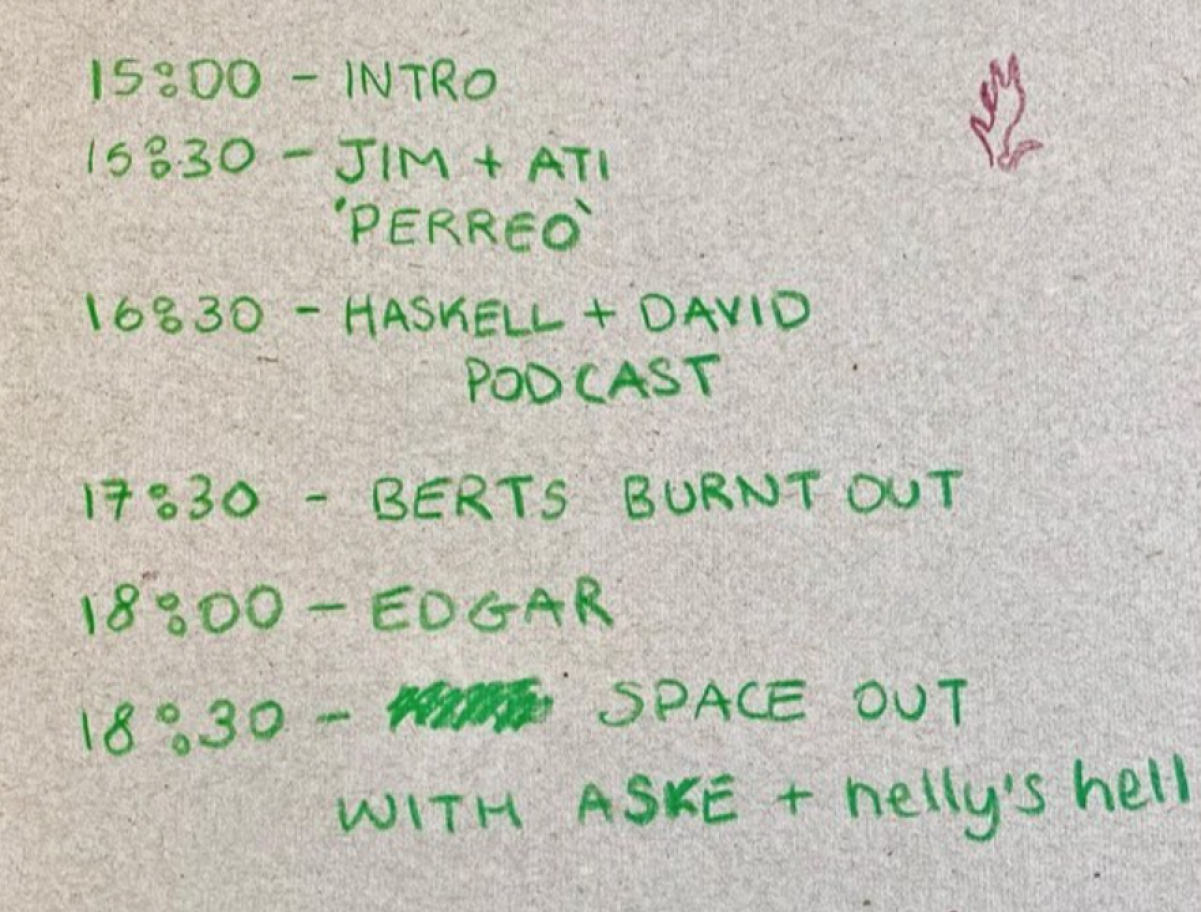 15:00 - INTRO
15:30 - JIM + ATI
'PERREO`
16:30 - HASKELL + DAVID
PODCAST
17:30 - BERTS BURNT OUT
18:00 - EDGAR
18:30 - SPACE OUT
WITH ASKE + nelly's hell